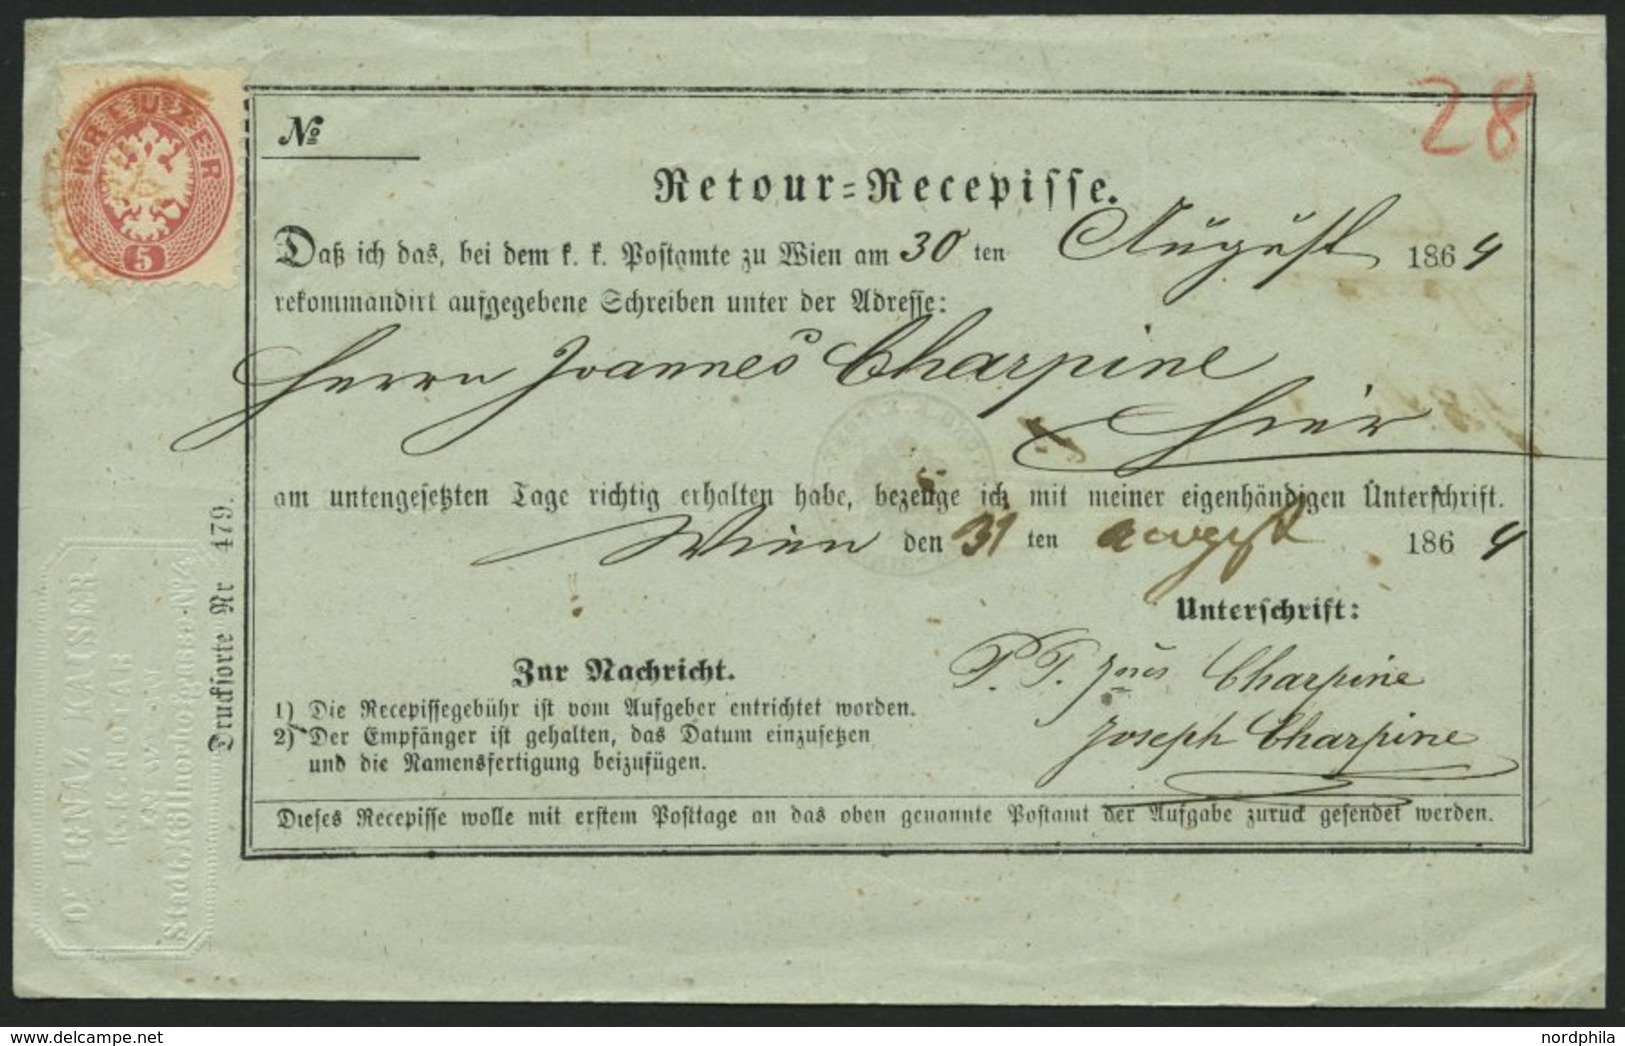 KREUZER
5
28
No
Retour-Recepisse.
Daß ich das, bei dem k. k. Postamte zu Wien am 30 ten August 1864
rekommandirt aufgegebene Schreiben unter der Adresse:
Herrn Joannes Charpine
Hier
am untengesetzten Tage richtig erhalten habe, bezeuge ich mit meiner eigenhändigen Unterschrift.
Wien den 31 ten august 1864
Unterschrift:
P. T. Charpine
Joseph Charpine
Zur Nachricht.
1) Die Recepissegebühr ist vom Aufgeber entrichtet worden.
2) Der Empfänger ist gehalten, das Datum einzusetzen
und die Namensfertigung beizufügen.
Dieses Recepisse wolle mit erstem Posttage an das oben genannte Postamt der Aufgabe zurück gesendet werden.
Drucksorte Nr 479.
Dr IGNAZ KAISER
K. K. NOTAR
IN WIEN
Stadt, Köllnerhofgasse No 4
nordphila